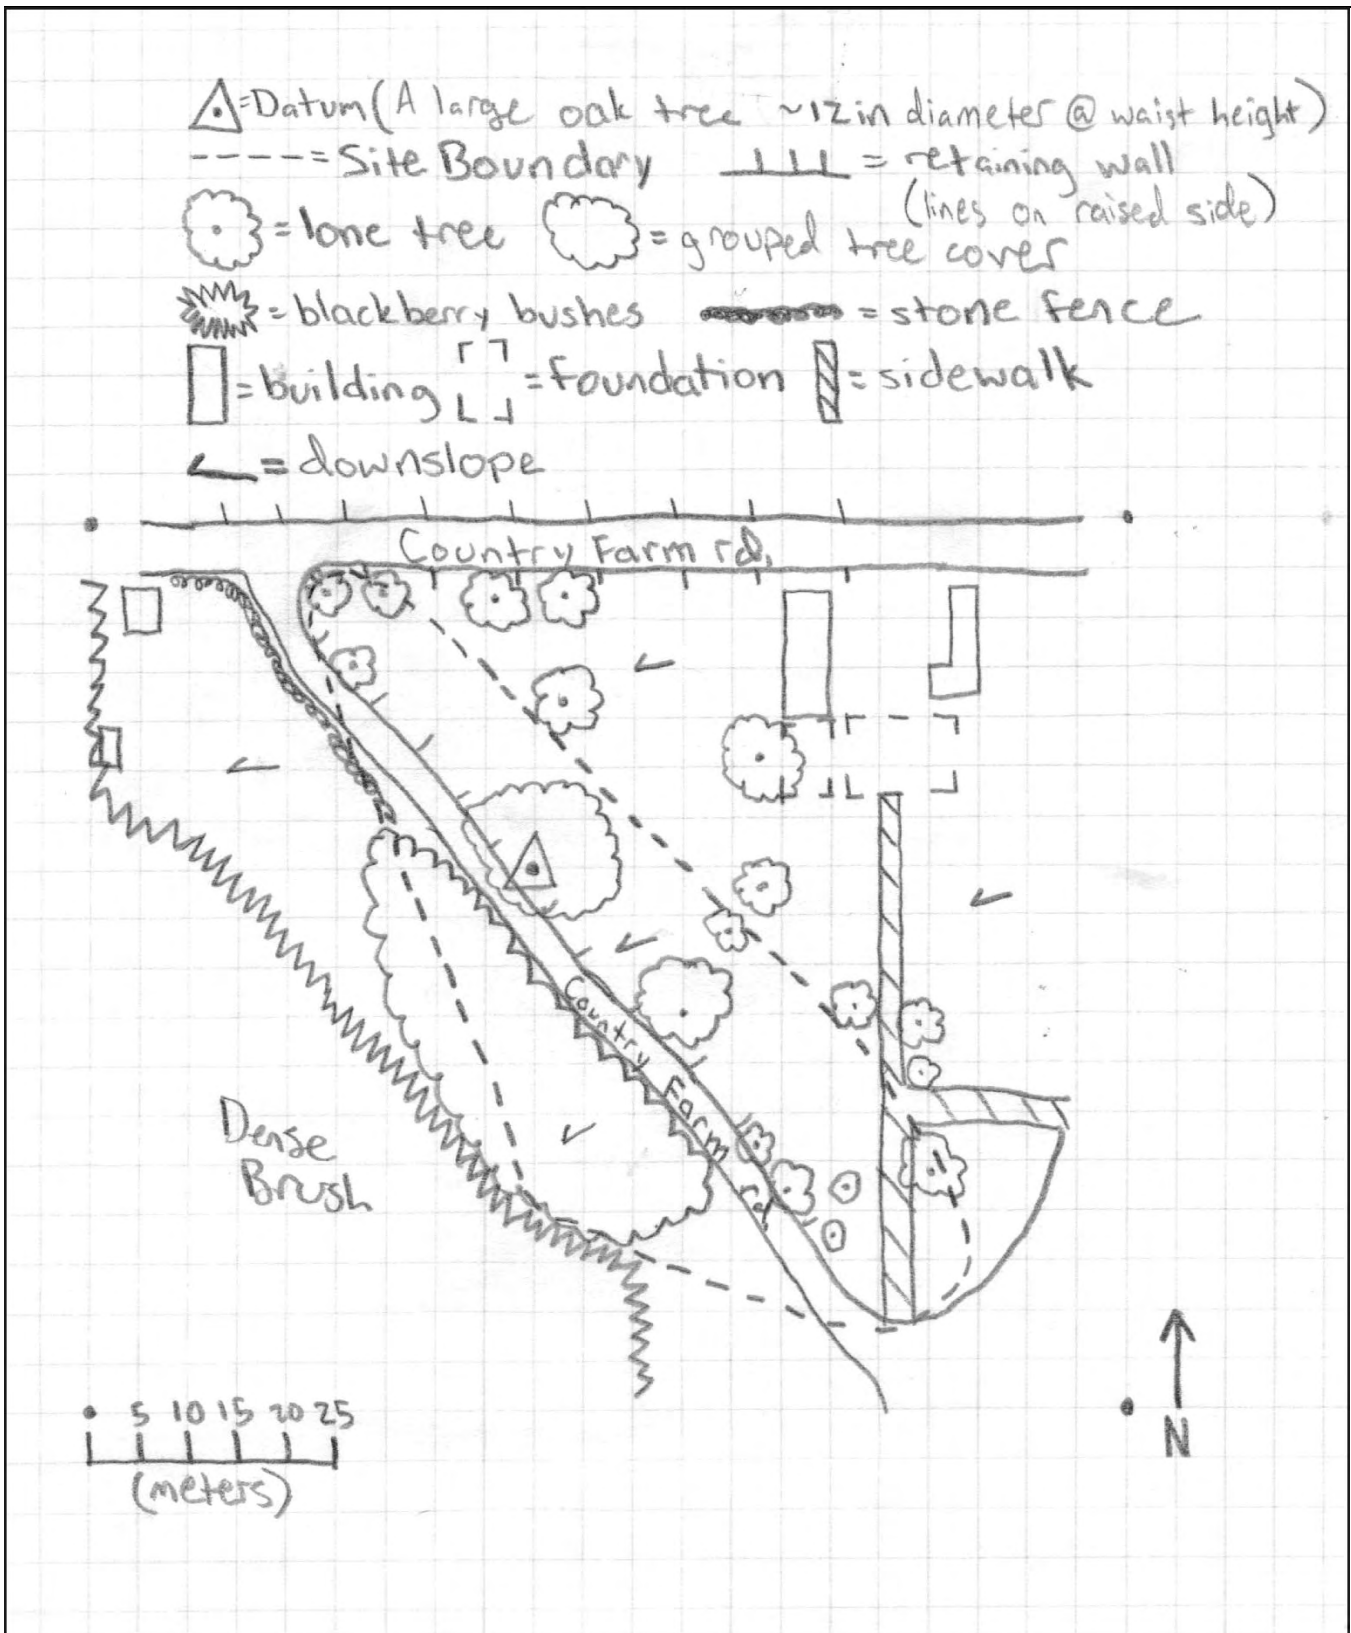 =Datum (A large oak tree ~12in diameter @ waist height)
= Site Boundary
= retaining wall
(lines on raised side)
= lone tree
= grouped tree cover
= blackberry bushes
= stone fence
= building
= foundation
= sidewalk
= downslope
Country Farm rd.
Country Farm rd
Dense
Brush
5 10 15 20 25
(meters)
N